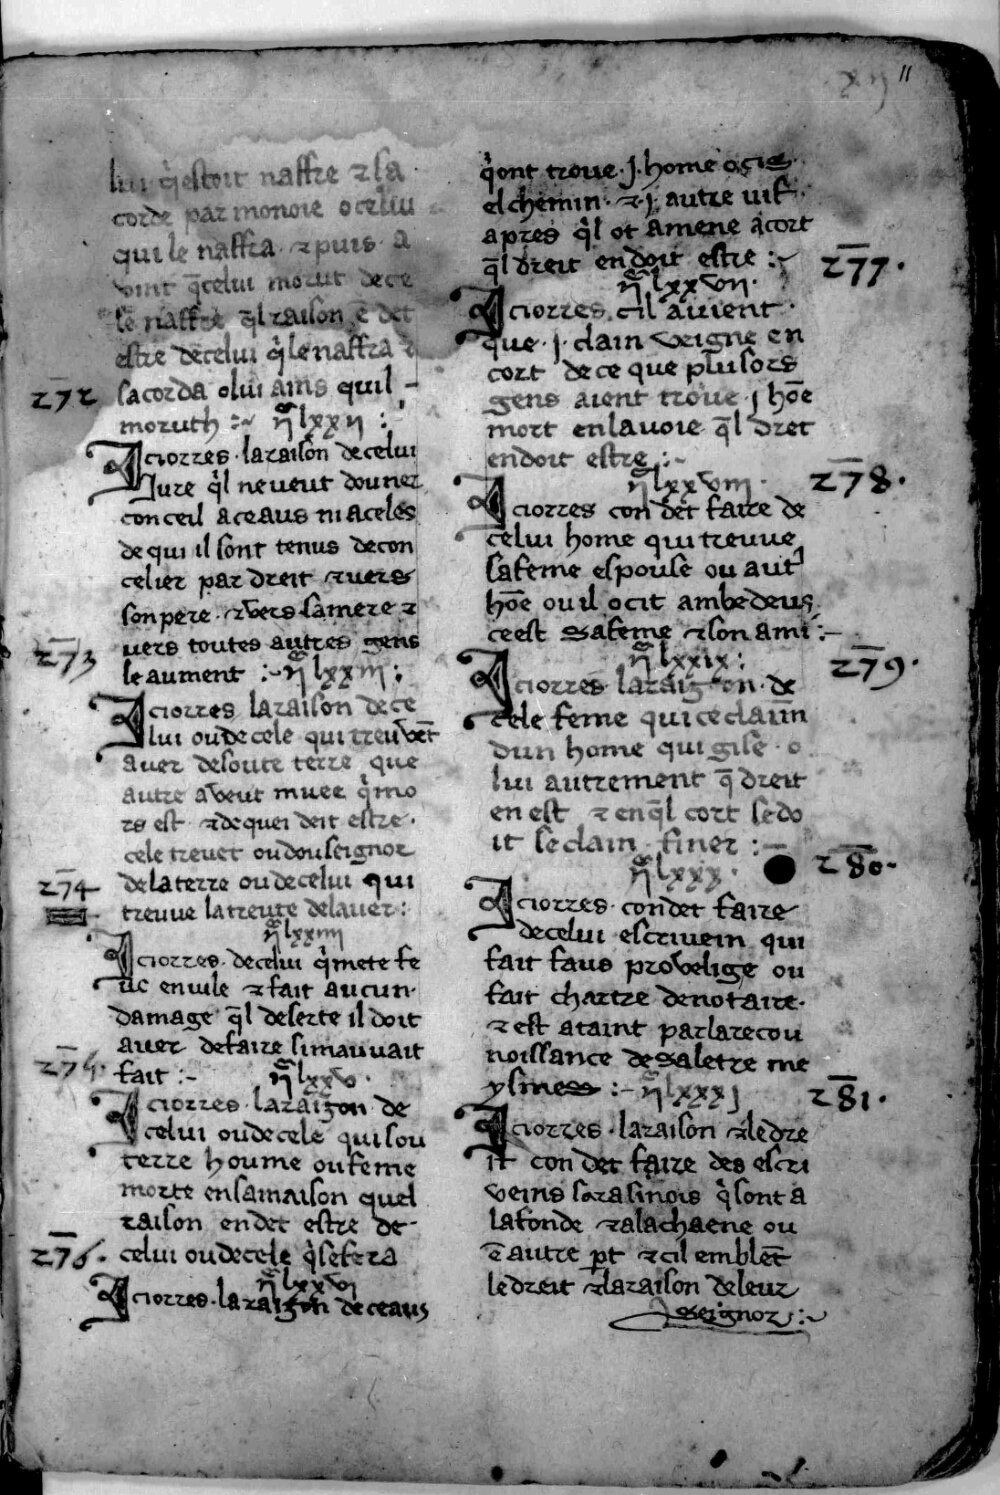 xij 11
lui q̓ estoit naffre ⁊ sa
corde par monoie o celui
qui le naffra · ⁊ puis · a
vint q̄ celui morut de ce
le naffre q̄l raison ē det
estre de celui q̓ le naffra ⁊
272 sacorda o lui ains quil
moruth :~ lxxij :
Iciorres · la raison de celui
Jure q̓l ne veut douner
conceil a ceaus ni a celes
de qui il sont tenus de con
celier par dreit ⁊ uers
son pere · ⁊ vers sa mere ⁊
uers toutes autres gens
273 leaument :~ lxxiij :
Iciorres la raison de ce
lui ou de cele qui treuvēt
auer desoute terre que
autre a veut muce q̓ mo
rs est · ⁊ de quei deit estre ·
cele treuet ou dou seignor
274 de la terre ou de celui qui
treuve la treute de lauer :
lxxiiij
Iciorres · de celui q̓ mete fe
uc en uile ⁊ fait aucun ·
damage q̄l deserte il doit
auer de faire si mauvait
275 · fait :~ lxxv ·
Iciorres · la raizon de
celui ou de cele qui sou
terre houme ou feme
morte en sa maison quel
raison en det estre de ·
276 · celui ou de cele q̓ se fera
lxxvi
Iciorres · la raizon de ceaus
q̓ ont trove · j · home ocis ·
el chemin · ⁊ · j · autre uif ·
apres q̓l ot amene a cort
q̄l dreit en doit estre :~ 277 ·
lxxvij ·
Iciorres · cil avient ·
que · j · clain veigne en
cort de ce que plusors
gens aient trove · j hōe
mort en la voie q̄l dret
en doit estre :~
lxxviij · 278 ·
Iciorres con det faire de
celui home qui treuve
sa feme espouse ou aut᷒
hōe ou il ocit ambedeus
ce est sa feme ⁊ son ami :~
lxxix : 279 ·
Iciorres la raizon · de
cele feme qui ce claim
dun home qui gise · o
lui autrement q̄ dreit
en est ⁊ en q̄l cort se do
it se clain finer :~
lxxx · 280 ·
Iciorres · con det faire
de celui escrivein qui
fait faus provelige ou
fait chartre de notaire ·
⁊ est ataint par la recou
noissance de sa letre me
ysmes :~ lxxxj 281 ·
Iciorres · la raison ⁊ le dre
it con det faire des escri
veins sarasinois q̓ sont a
la fonde ⁊ a la chaene ou
ē autre pt ⁊ cil emblēt
le dreit ⁊ la raison de leur
seignor :~